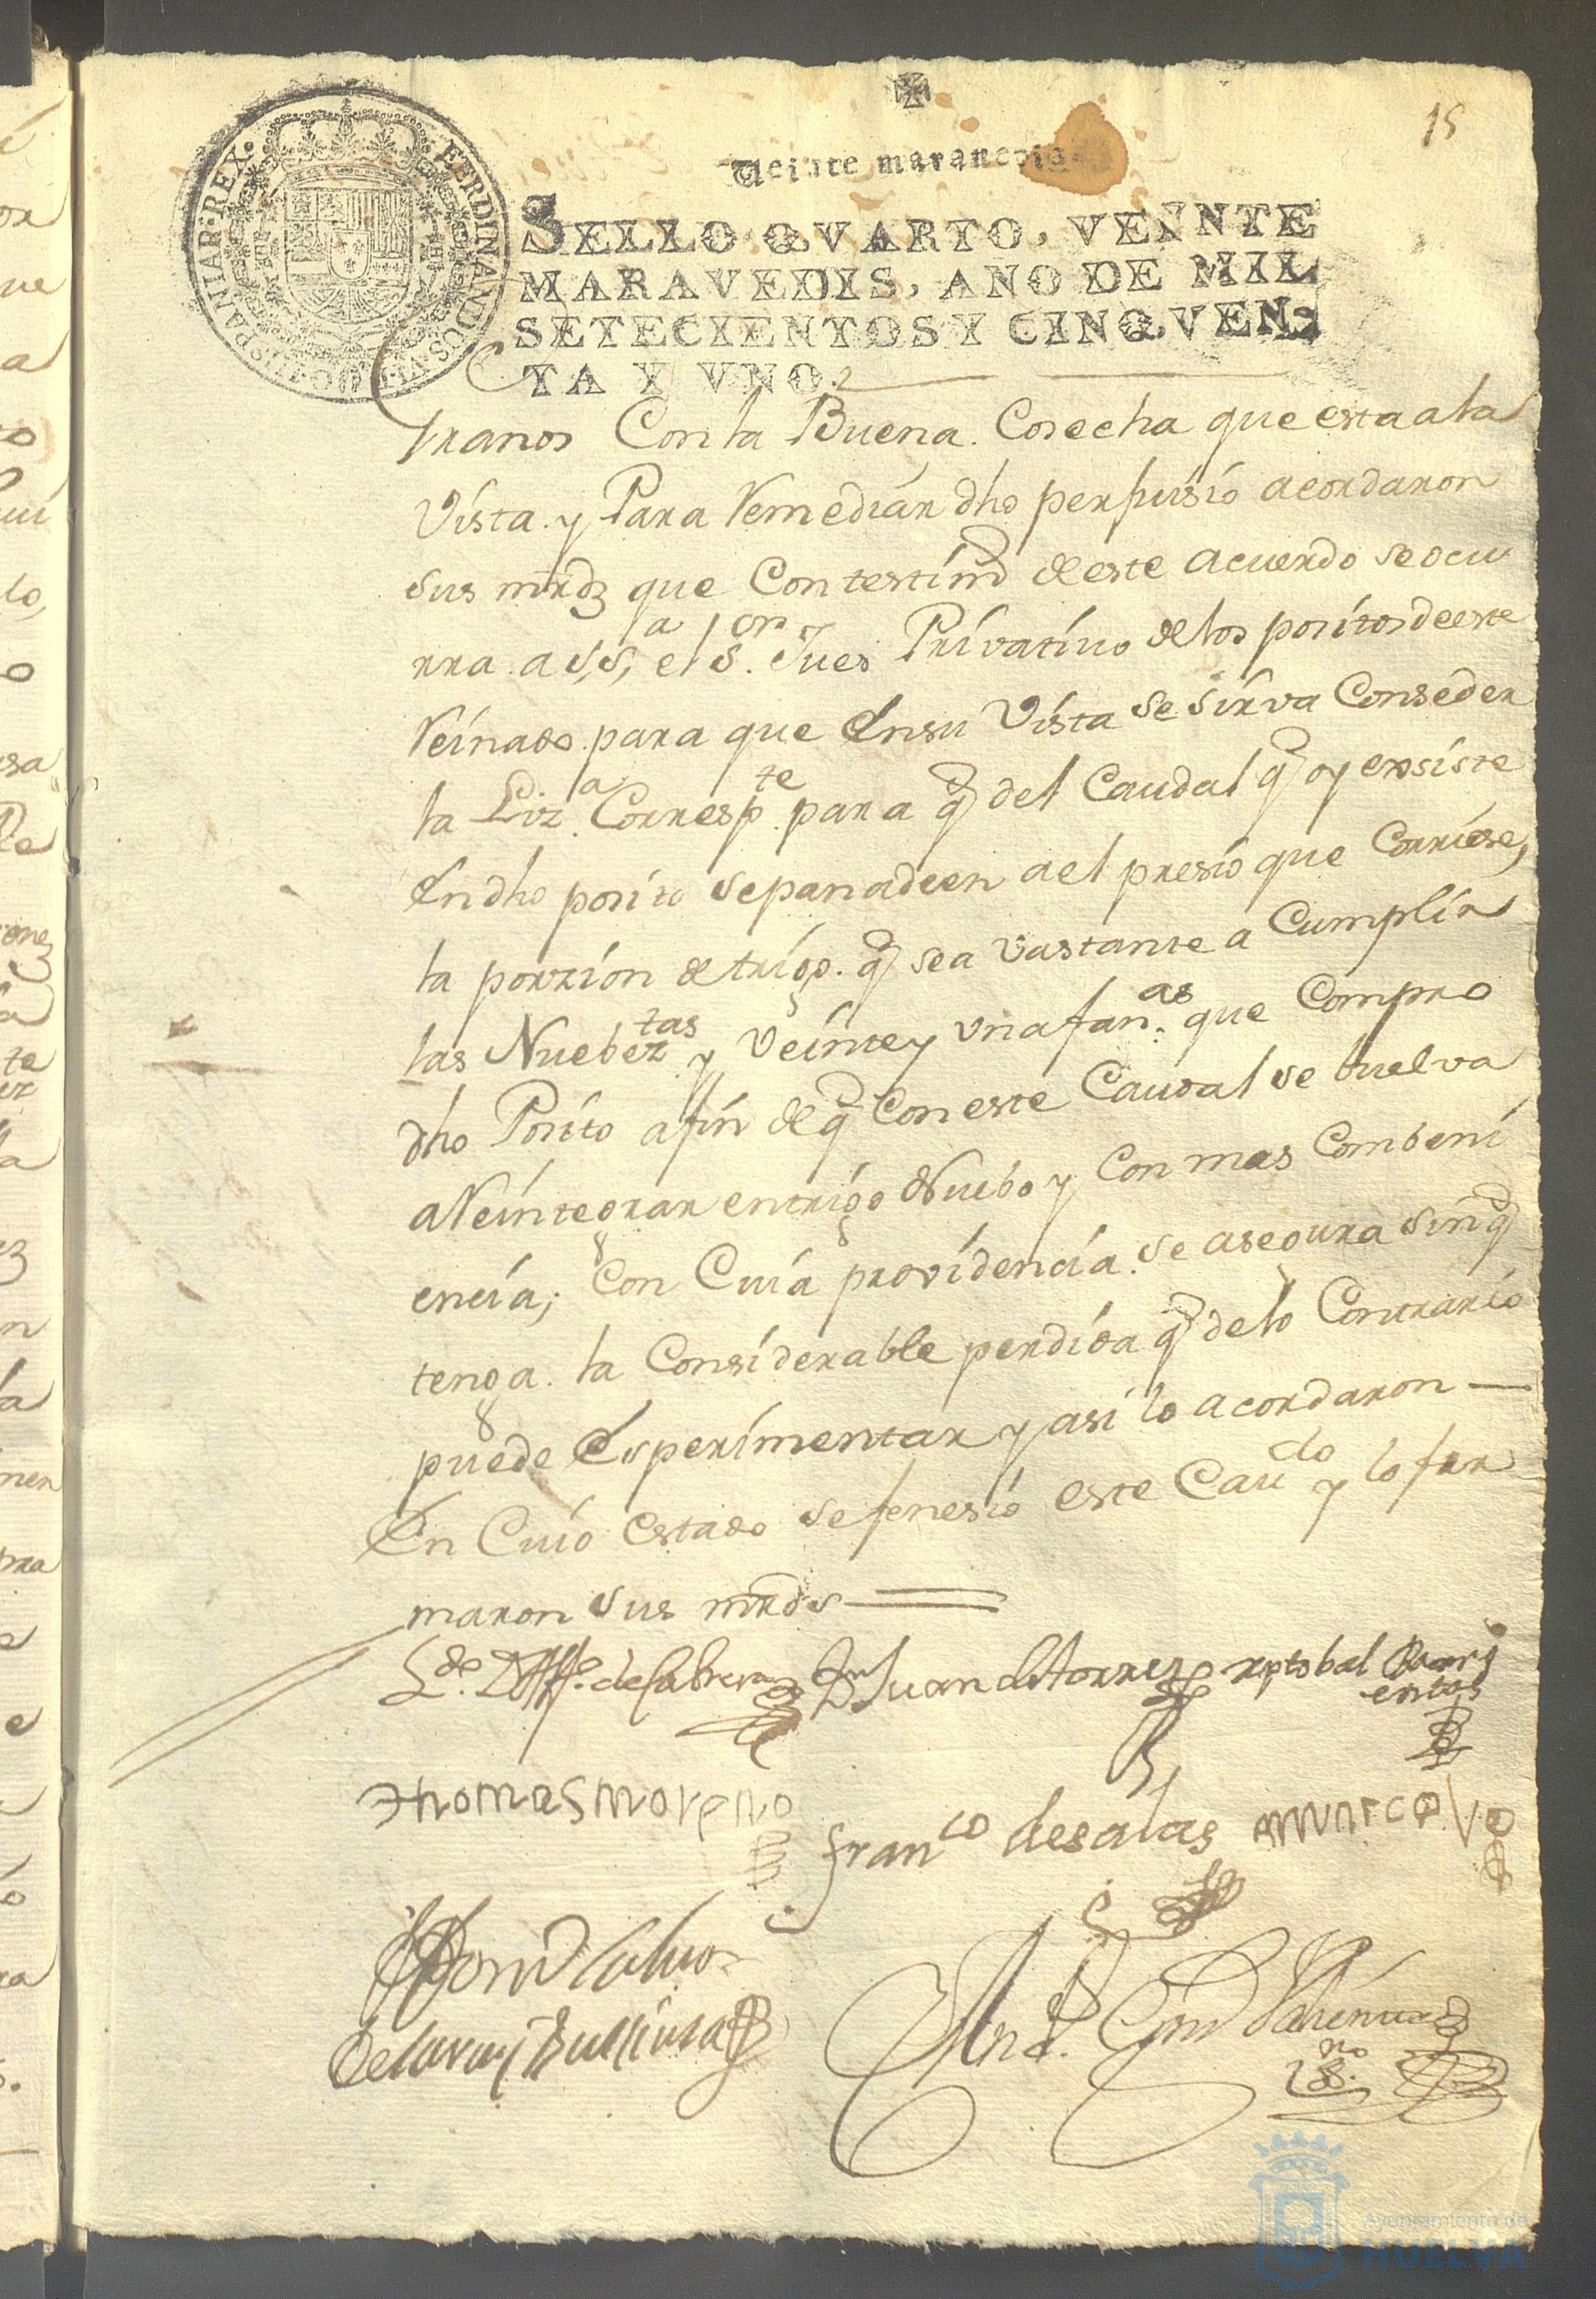 15
Veinte maravedis
SELLO QVARTO, VEINTE
MARAVEDIS, AÑO DE MIL
SETECIENTOS Y CINQVEN-
TA Y VNO.
FERDINANDUS·VI·D·G·HISPANIAR·REX·
Granos Con la Buena Cosecha que esta a la
Vista. y Para Remediar dho perjuisio acordaron
sus mrds que Con testimo de este acuerdo se ocu
rra a S.Sa. el Sor. Jues Privativo de los positos de este
Reinado. para que en su Vista se sirva Conseder
la Liza. Correspte. para q del Caudal q oy exsiste
en dho posito se panadeen a el presio que Corriese,
la porzion de trigo. q sea vastante a Cumplir
las Nuebeztas y veinte y una fanas. que Compro
dho Posito a fin de q Con este Caudal se buelva
a Reintegrar en trigo Nuebo y Con mas Combeni
encia; Con Cuia providencia se asegura sin q
tenga. la Considerable perdida q de lo Contrario
puede Esperimentar y asi lo acordaron —
En Cuio estado se fenesio este Cavdo y lo fir
maron sus mrds
Ldo. Dn Alfo. de Cabrera Dn Juan de torres xptobal Barri
entos
thomas moreno
franco de salas marco
Dom Calvo
de lara y Bullones
Ante mi
Ayuntamiento de
HUELVA